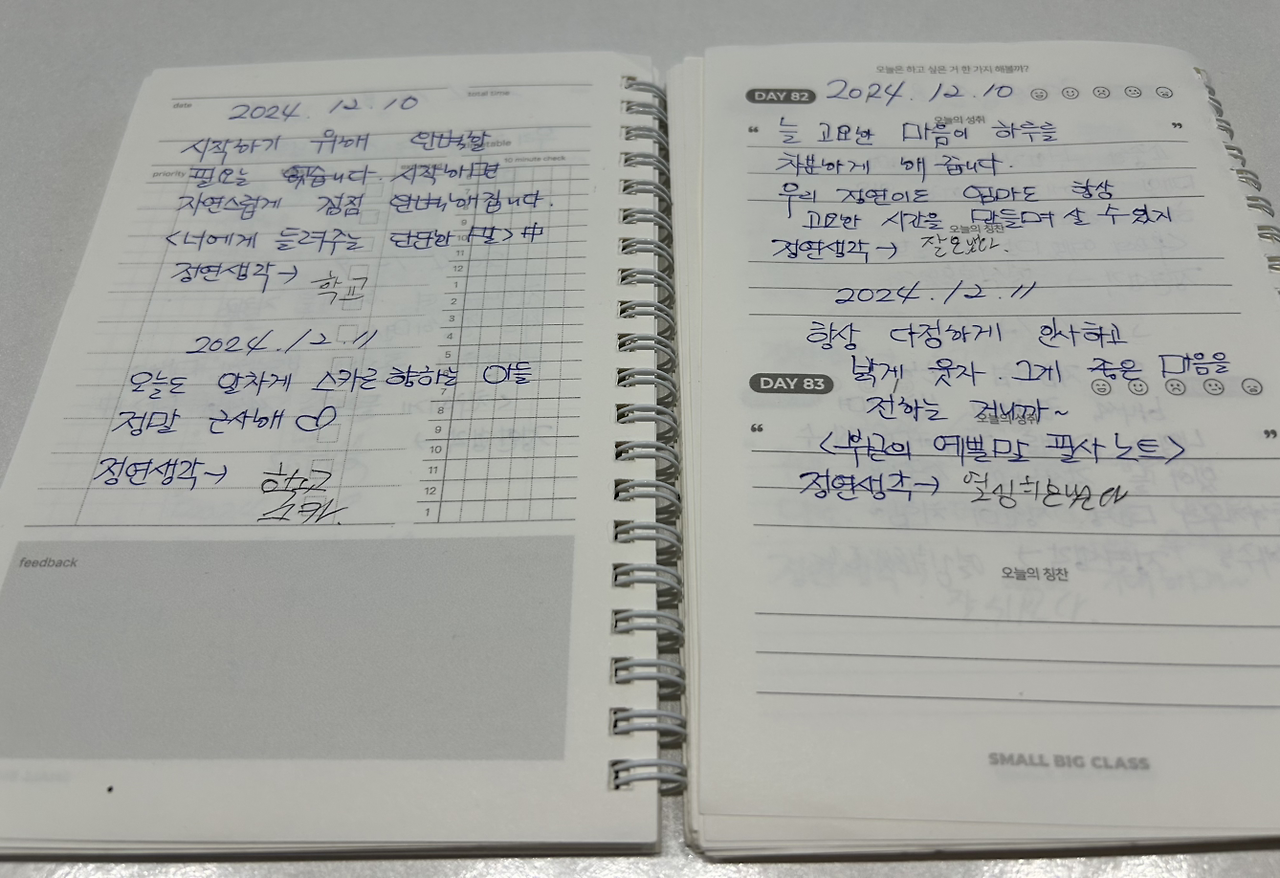 date
total time
2024. 12. 10
시작하기 위해 완벽할
table
10 minute check
priority
필요는 없습니다. 시작하면
자연스럽게 점점 완벽해집니다.
<너에게 들려주는 단단한 말> 中
정연생각→ 학교
2024. 12. 11
오늘도 알차게 스카로 향하는 아들
정말 근사해
정연생각→ 학교
스카.
9
10
11
12
1
2
3
4
5
7
8
9
10
11
12
1
feedback
오늘은 하고 싶은 거 한 가지 해볼까?
DAY 82 2024. 12. 10
오늘의 성취
“ 늘 고요한 마음이 하루를 ”
차분하게 해 줍니다.
우리 정연이도 엄마도 항상
고요한 시간을 만들며 살 수 있지
오늘의 칭찬
정연생각→ 잘오셨다.
2024. 12. 11
항상 다정하게 인사하고
밝게 웃자. 그게 좋은 마음을
DAY 83
전하는 거니까~
오늘의 성취
“ ”
<부모의 예쁜말 필사 노트>
정연생각→
오늘의 칭찬
SMALL BIG CLASS